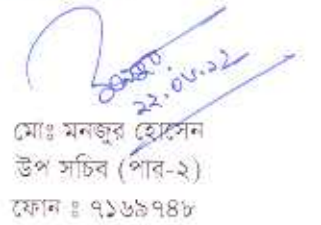 ২২.০৮.২২
মোঃ মনজুর হোসেন
উপ সচিব (পার-২)
ফোন ঃ ৭১৬৯৭৪৮